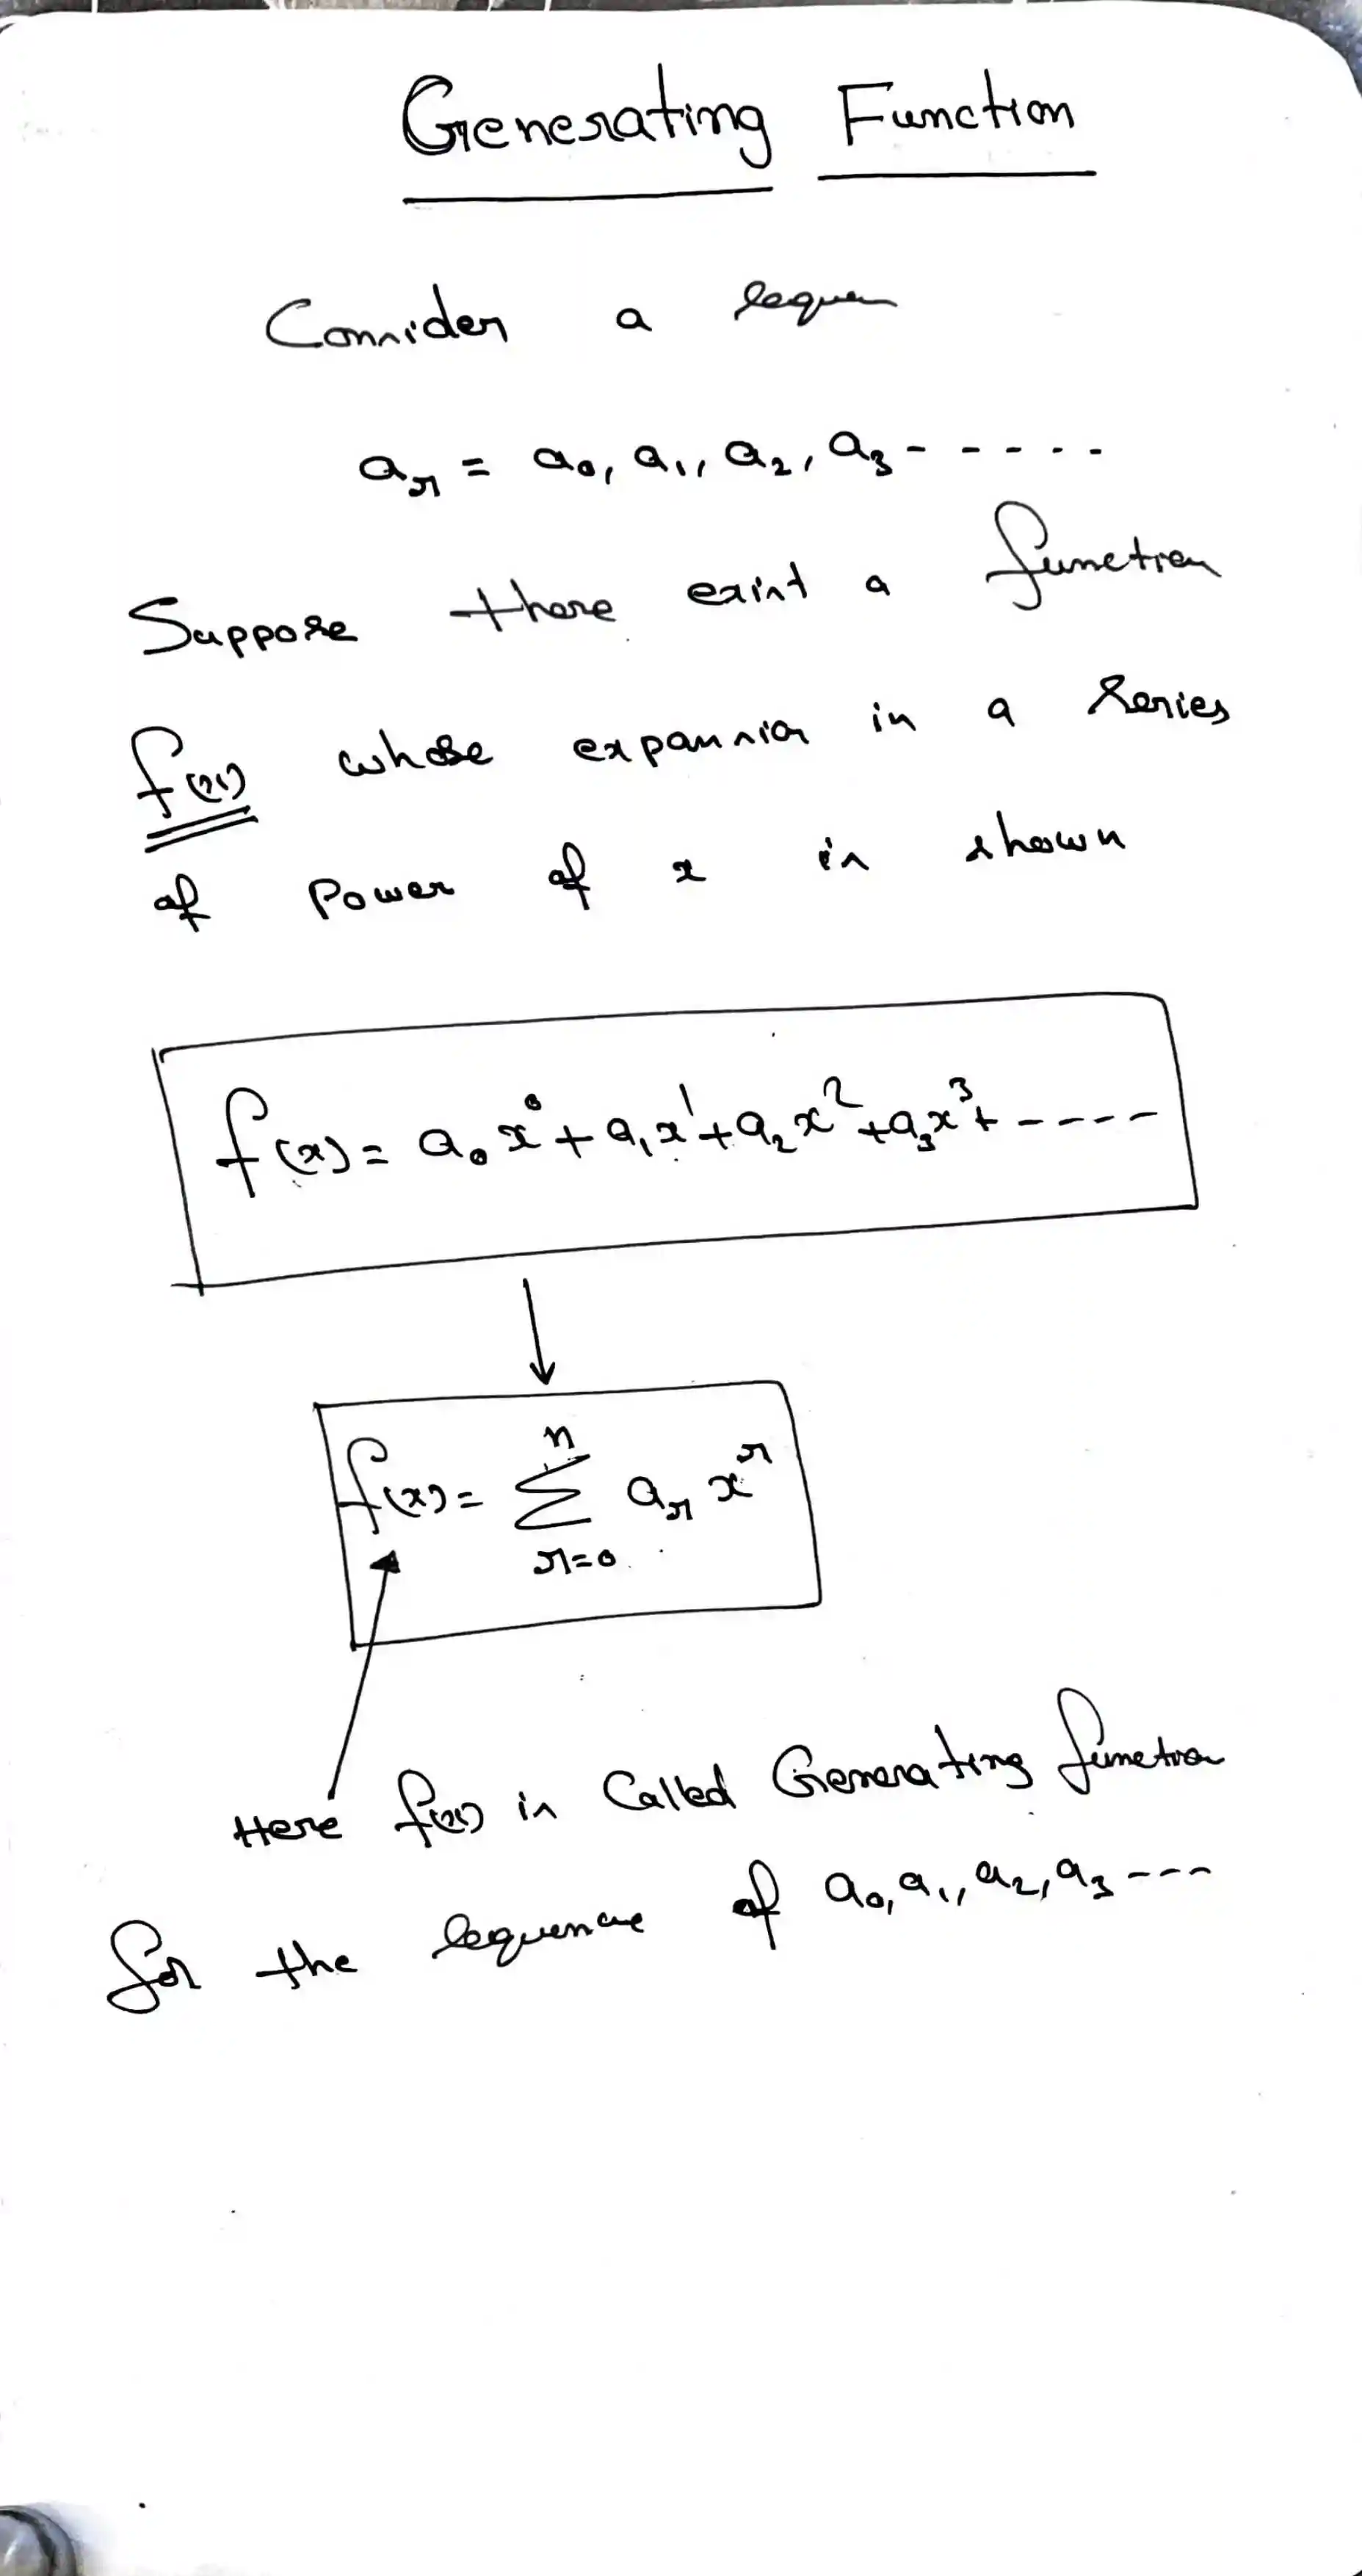 Generating Function
Consider a sequen
aᵣ = a₀, a₁, a₂, a₃ - - - - - -
Suppose there exist a function
f(x) whose expansion in a series
of Power of x is shown
f(x) = a₀x⁰ + a₁x¹ + a₂x² + a₃x³ + - - - -
n
f(x) = Σ aᵣ xʳ
r=0
Here f(x) is Called Generating function
for the sequence of a₀, a₁, a₂, a₃ - - -